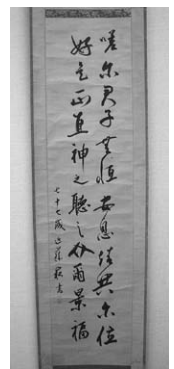 嗟尔君子無恒安息靖共尔位
好是正直神之聽之介爾景福
七十七歲